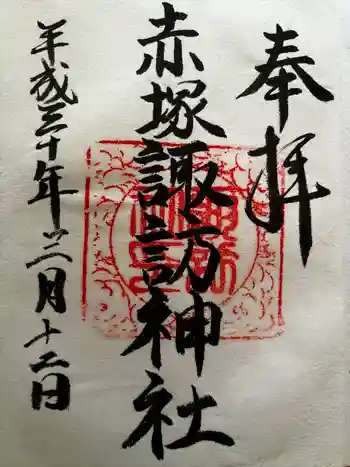 奉拝
赤塚諏訪神社
平成三十年三月十二日